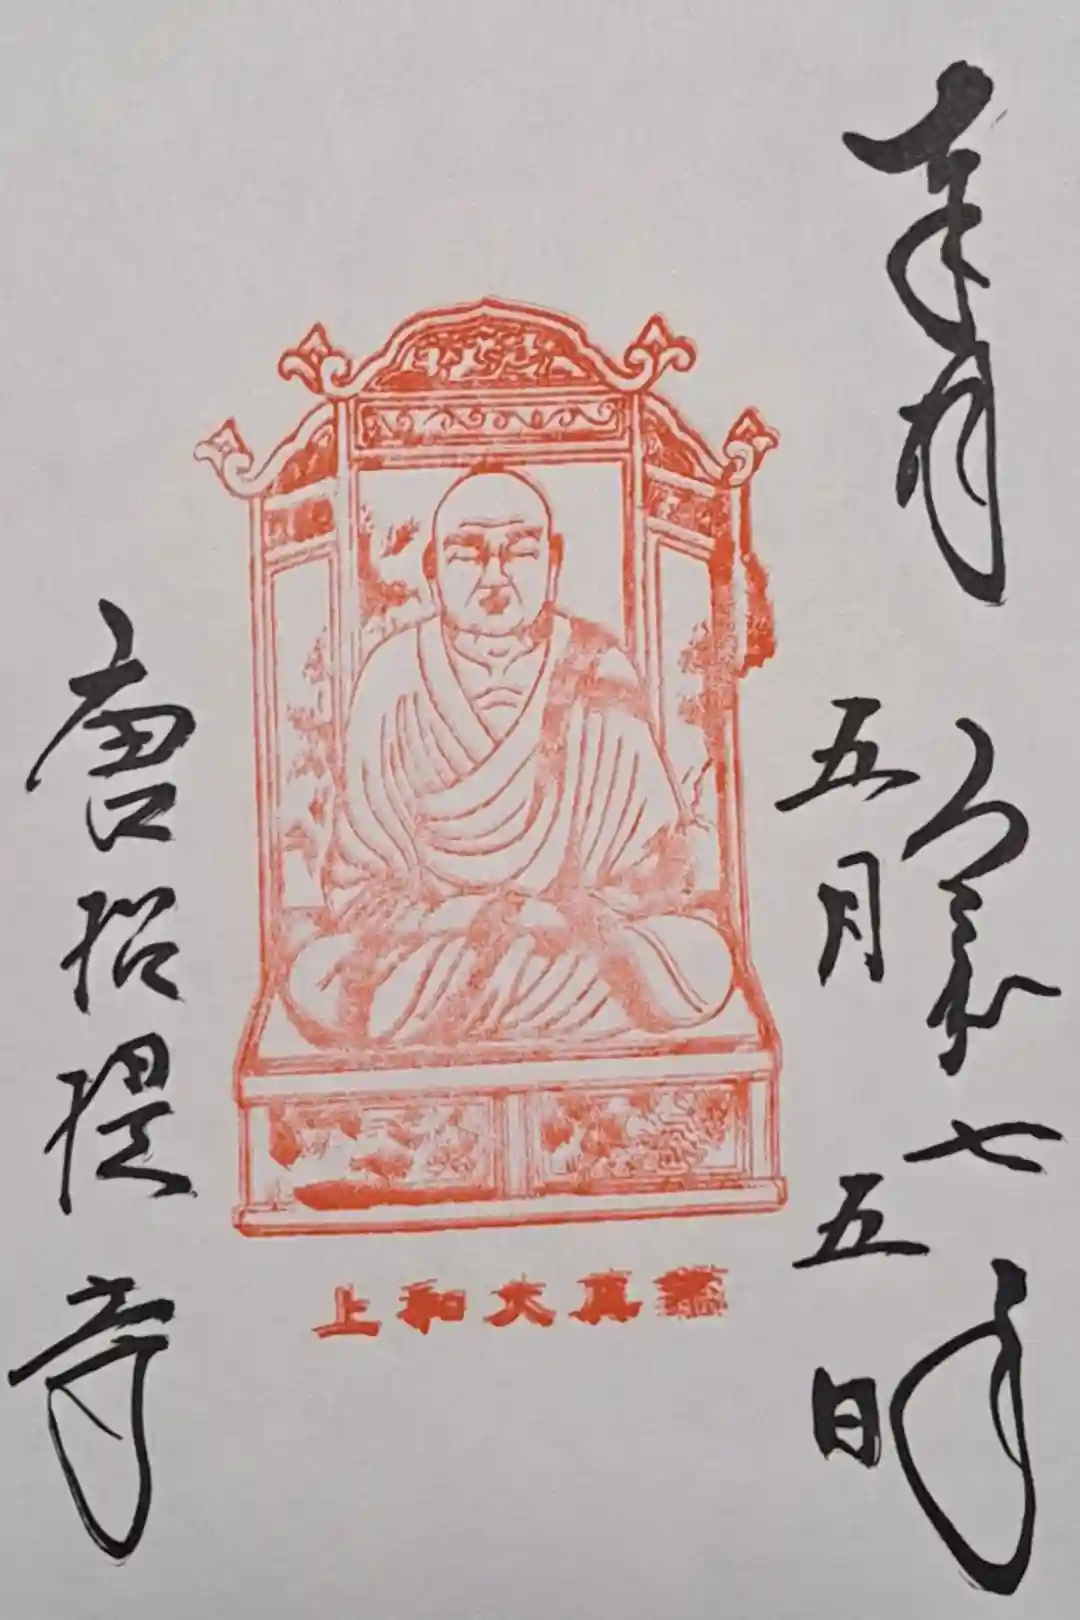 奉拝
令和七年
五月五日
鑑真大和上
唐招提寺